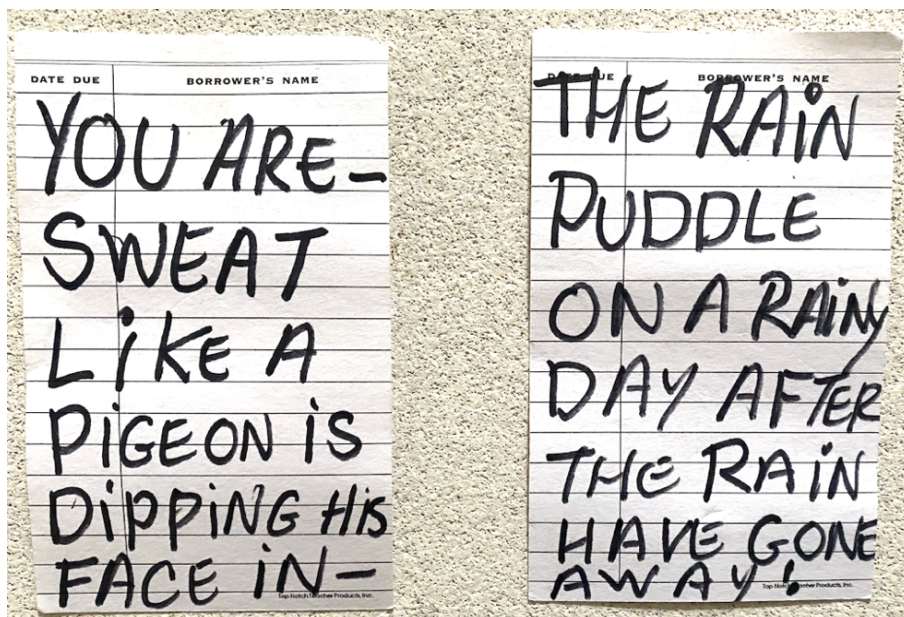 DATE DUE BORROWER'S NAME
YOU ARE–
SWEAT
LiKE A
PiGEON iS
DiPPiNG HiS
FACE iN–
Top Notch Teacher Products, Inc.
DATE DUE BORROWER'S NAME
THE RAiN
PUDDLE
ON A RAiNy
DAY AFTER
THE RAiN
HAVE GONE
AWAY!
Top Notch Teacher Products, Inc.